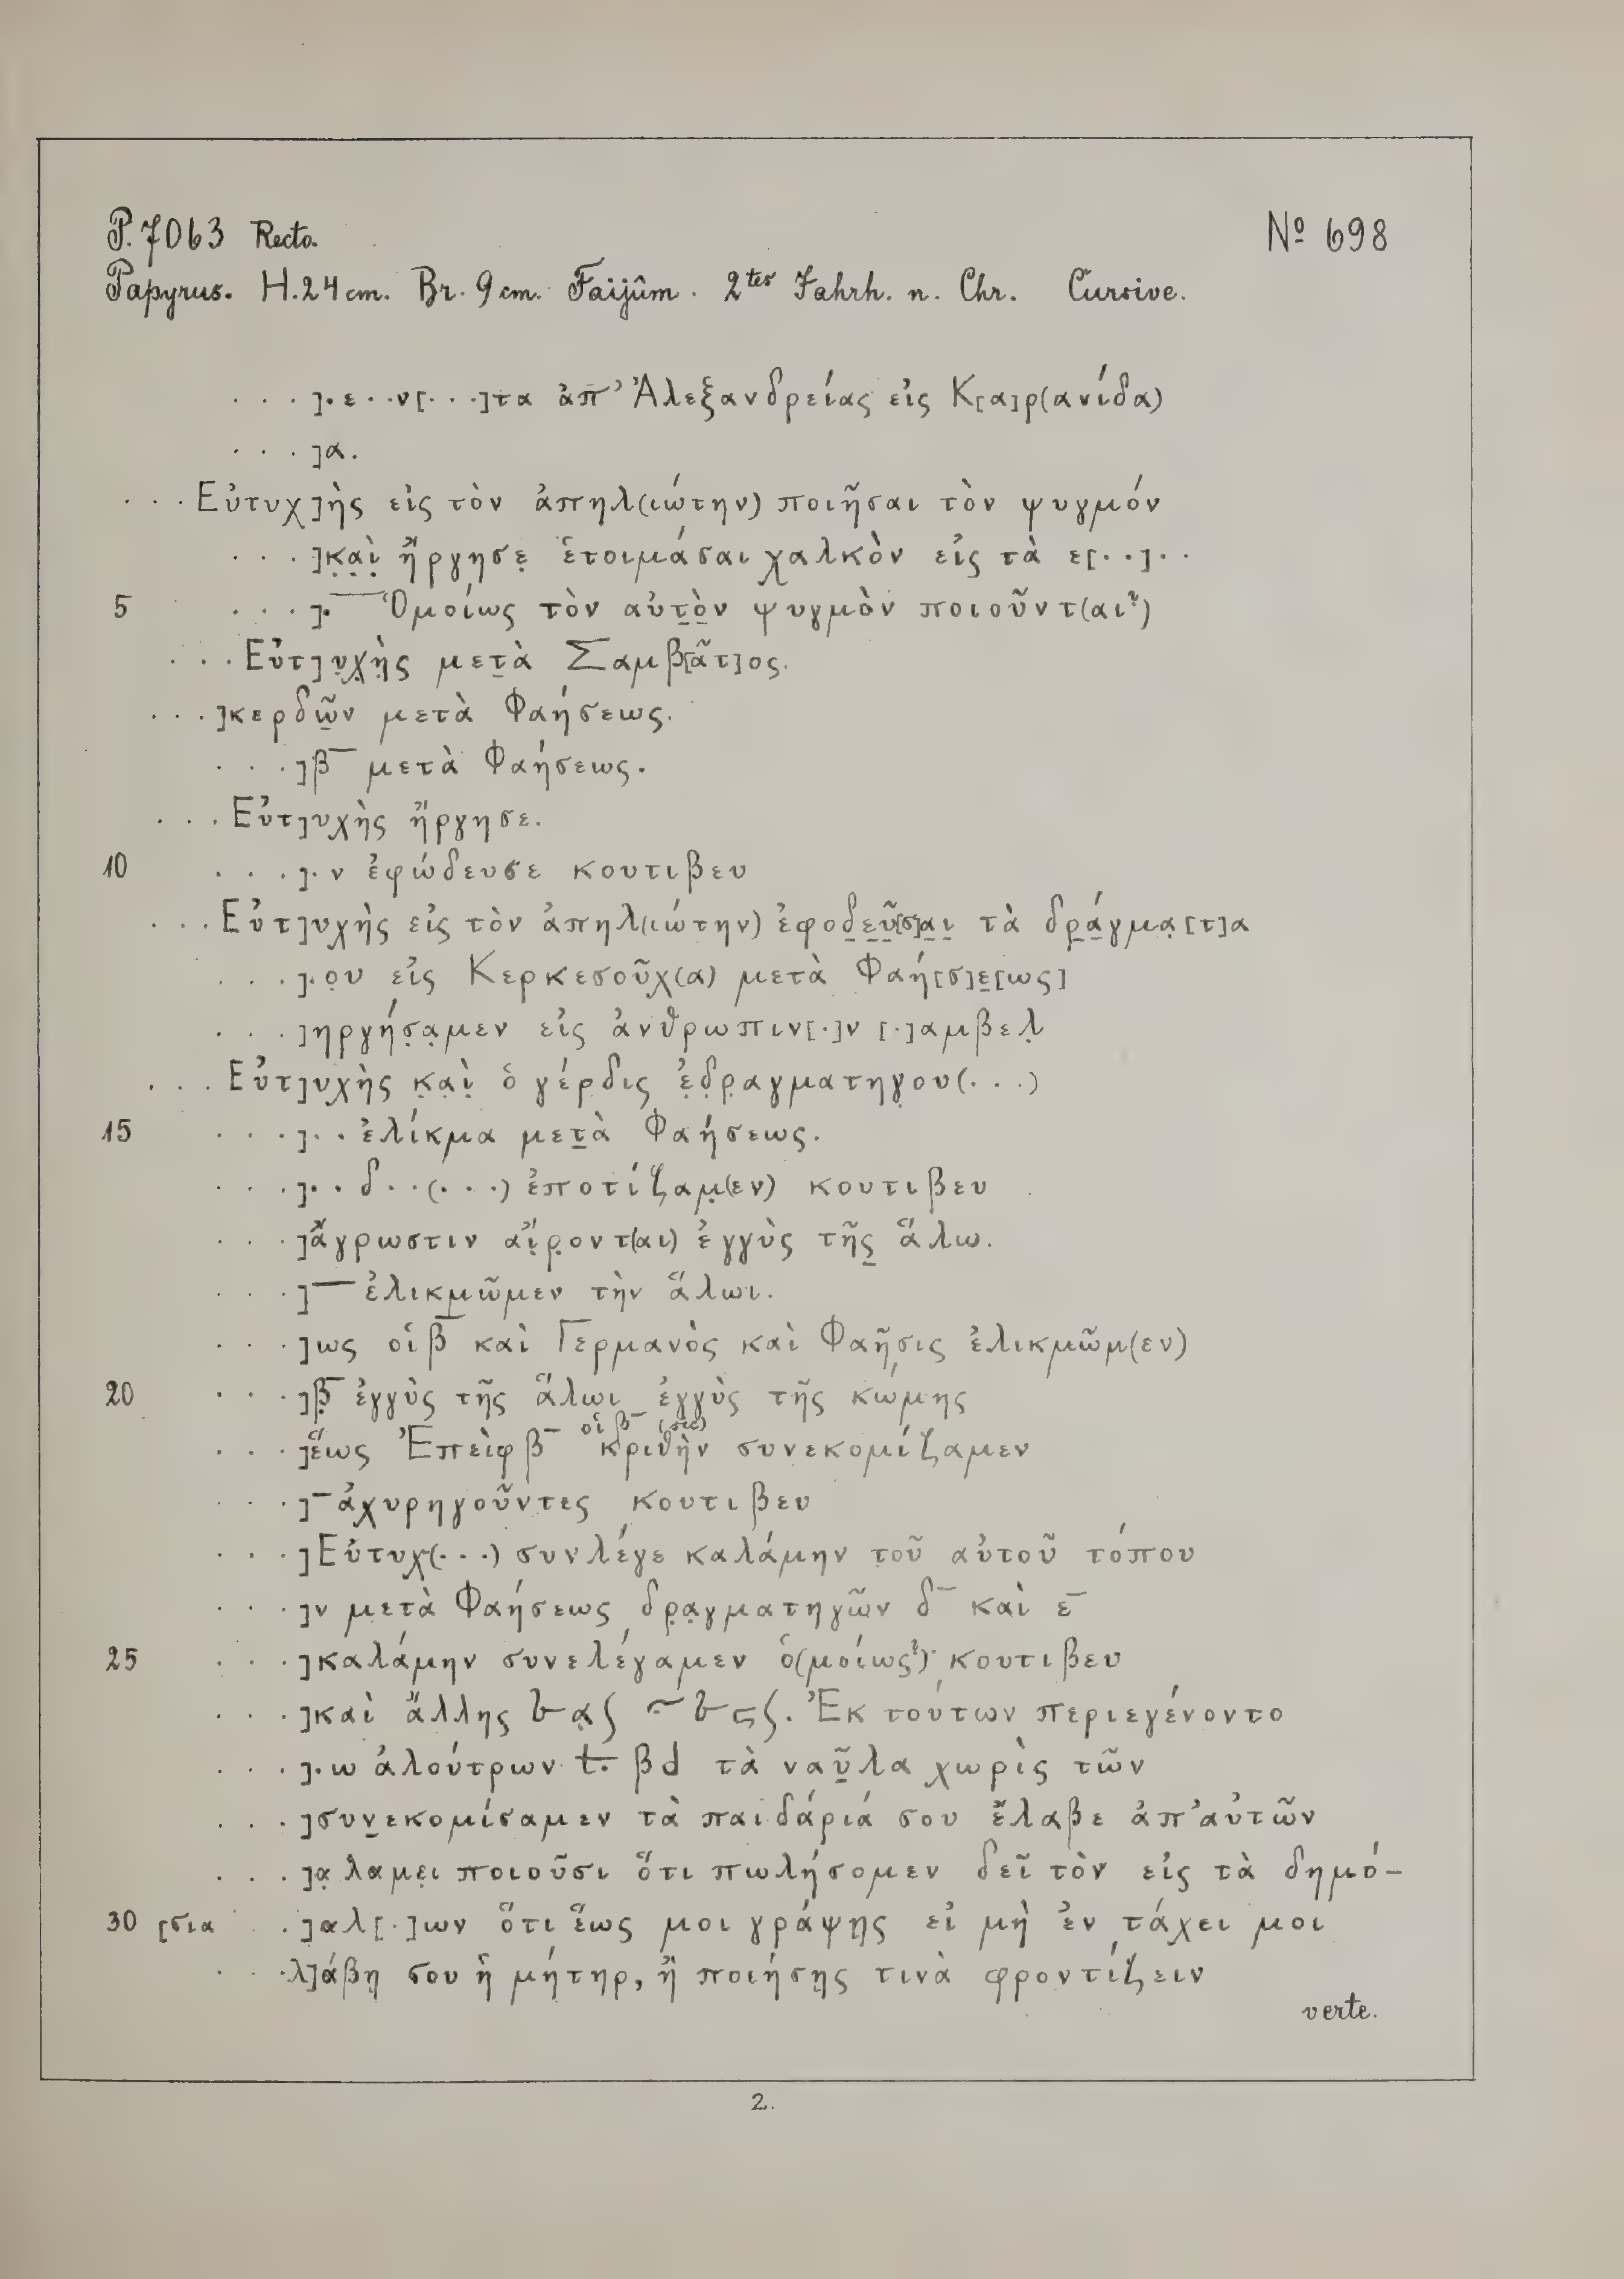 P. 7063 Recto. Nº 698
Papyrus. H. 24 cm. Br. 9 cm. Faijûm. 2tes Jahrh. n. Chr. Cursive.
. . . ]. ε . . ν[. . .]τα ἀπ’ Ἀλεξανδρείας εἰς Κ[α]ρ(ανίδα)
. . . ]α.
. . . Εὐτυχ]ὴς εἰς τὸν ἀπηλ(ιώτην) ποιῆσαι τὸν ψυγμόν
. . . ]κ̣α̣ὶ̣ ἤργησε̣ ἑτοιμάσαι χαλκὸν εἰς τὰ ε[. .]. .
5 . . . ].¯ Ὁμοίως τὸν αὐτ̣ὸ̣ν ψυγμὸν ποιοῦντ(αι?)
. . . Εὐτ]υ̣χ̣ὴ̣ς μετ̣ὰ Σαμβ[ᾶτ]ος.
. . . ]κερδῶ̣ν μετὰ Φαήσεως.
. . . ]β¯ μετὰ Φαήσεως.
. . . Εὐτ]υχὴς ἤργησε.
10 . . . ]. ν ἐφώδευσε κουτιβευ
. . . Εὐτ]υχὴς εἰς τὸν ἀπηλ(ιώτην) ἐφοδ̣ε̣ῦ̣[σ]α̣ι̣ τὰ δρ̣ά̣γμα̣[τ]α
. . . ]. ο̣υ εἰς Κερκεσοῦχ(α) μετὰ Φαή[σ]ε̣[ως]
. . . ]ηργήσ̣α̣μεν εἰς ἀνθρωπιν[.]ν [.]αμβελ̣
. . . Εὐτ]υχὴς κ̣α̣ὶ̣ ὁ γέρδις ἐ̣δ̣ρ̣αγματηγ̣ου(. . .)
15 . . . ]. . ἐλίκμα μετ̣ὰ Φαήσεως.
. . . ]. . δ . . (. . .) ἐποτίζαμ̣(εν) κουτιβευ
. . . ]ἄγρωστιν αἴ̣ρ̣οντ(αι) ἐγγὺς τῆς̣ ἅλω.
. . . ]¯ ἐλικμ̣ῶμεν τὴν ἅλωι.
. . . ]ως οἱ β¯ καὶ Γερμανὸς καὶ Φαῆσ̣ις ἐλικμῶμ(εν)
20 . . . ]β̣¯ ἐγγὺς τῆς ἅλωι ἐγγὺς τῆς κώμης
. . . ]ἕως Ἐπεὶφ β¯ οἱ β¯ (sic) κριθὴν συνεκομίζαμεν
. . . ]¯ ἀχυρηγοῦντες κουτιβευ
. . . ]Εὐτυχ(. . .) συνλέγε καλάμην τ̣οῦ αὐτοῦ τόπου
. . . ]ν μετὰ Φαήσεως δρ̣α̣γματηγῶν δ¯ καὶ ε¯
25 . . . ]καλάμην συνελέγαμεν ὁ(μοίως?) κουτιβευ
. . . ]καὶ ἄλλης . Ἐκ τούτων περιεγένοντο
. . . ]. ω ἀλούτρων βd τὰ ναῦ̣λα χωρὶς τῶν
. . . ]συν̣εκομίσαμεν τὰ παιδάριά σου ἔλαβε ἀπ’ αὐτῶν
. . . ]α̣ λαμε̣ι ποιοῦσι ὅτι πωλήσομεν δεῖ τὸν εἰς τὰ δημό-
30 [σια . . ]αλ[.]ων ὅτι ἕως μοι γράψῃς εἰ μὴ ἐν τάχει μοι
. . . λ]άβῃ σου ἡ μήτηρ, ἢ ποιήσῃς τινὰ φροντίζειν
verte.
2.